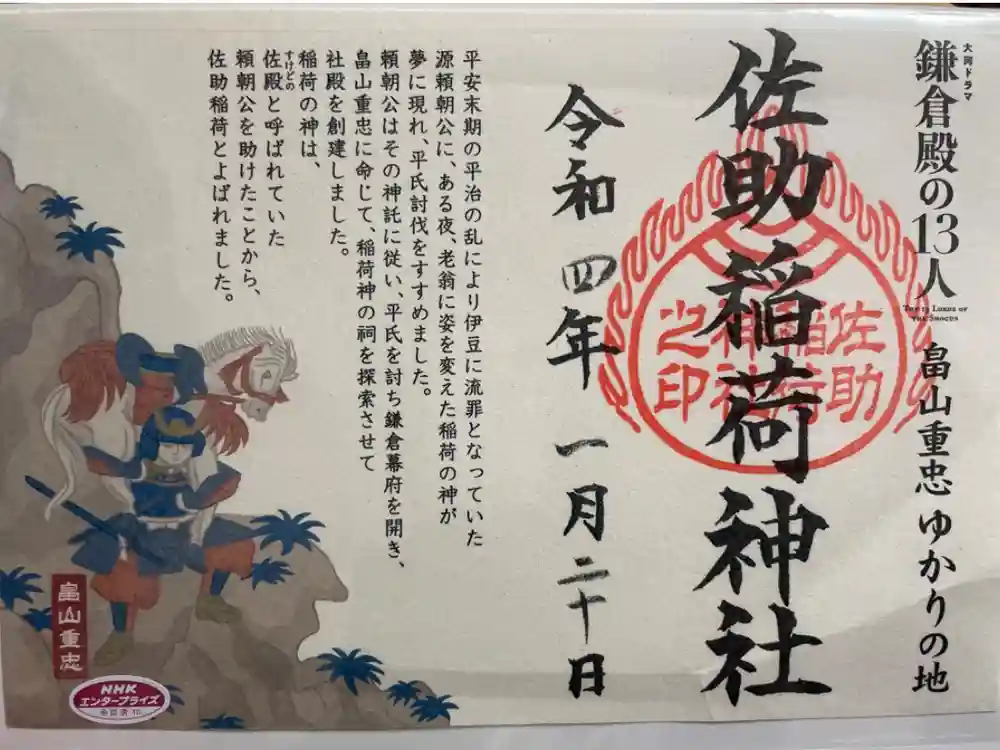 大河ドラマ
鎌倉殿の13人
THE 13 LORDS OF
THE SHOGUN
畠山重忠 ゆかりの地
佐助稲荷神社
佐助
稲荷
神社
之印
令和 四年 一月二十日
平安末期の平治の乱により伊豆に流罪となっていた
源頼朝公に、ある夜、老翁に姿を変えた稲荷の神が
夢に現れ、平氏討伐をすすめました。
頼朝公はその神託に従い、平氏を討ち鎌倉幕府を開き、
畠山重忠に命じて、稲荷神の祠を探索させて
社殿を創建しました。
稲荷の神は、
すけどの
佐殿と呼ばれていた
頼朝公を助けたことから、
佐助稲荷とよばれました。
畠山重忠
NHK
エンタープライズ